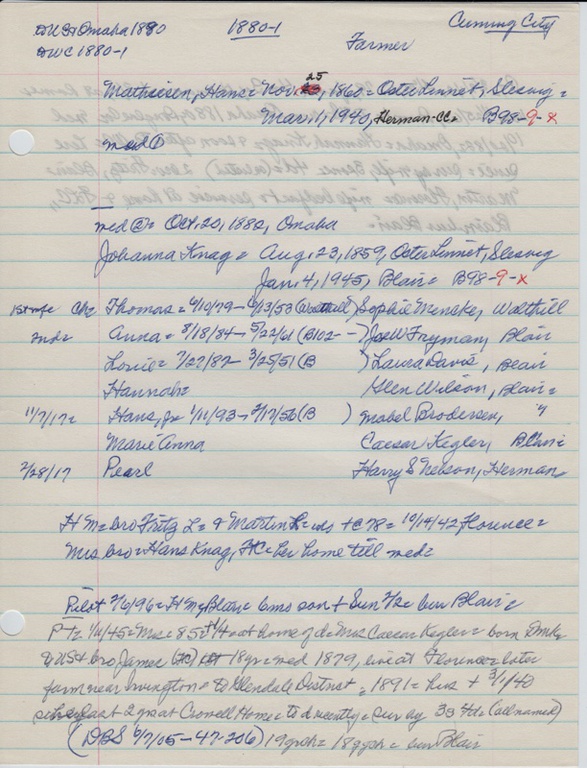 to US & Omaha 1880   1880-1   Cuming City
to WC 1880-1   Farmer
Mathiesen, Hans = Nov. 25, 1860 = Oster Linnet, Slesvig =
Mar. 1, 1940, Herman-CC = B98-9-x
med ①
med ② = Oct. 20, 1882, Omaha
Johanna Knag = Aug. 23, 1859, Oster Linnet, Slesvig
Jan. 4, 1945, Blair = B98-9-x
1st wife Ch = Thomas = 6/10/79 - 6/13/53 (Walthill) Sophie Mencke, Walthill
2nd = Anna = 8/18/84 - 5/22/61 (B102 - -) Joe W Fryman, Blair
Louie = 7/27/87 - 3/25/51 (B ) Laura Davis, Blair
Hannah = Glen Wilson, Blair =
11/7/17 = Hans, Jr = 1/11/93 - 2/17/56 (B ) Mabel Brodersen, "
Marie Anna Caesar Kegler, Blair =
2/28/17 Pearl Harry S Nelson, Herman
H M = bro Fritz L = & Martin = + C 78 = 10/14/42 Florence =
Mrs bro = Hans Knag, HC = her home till med =
Pilot 7/6/96 = H M = Blair = 6 mo son + Sun 7/2 = bur Blair =
P T = 1/11/45 = Mrs = 85 = at home of d = Mrs Caesar Kegler = born Dmk =
to US & bro James 18 yr = med 1879, live at Florence = later
farm near Irvington = to Glendale District = 1891 = hus + 3/1/40
last 2 yr at Crowell Home = to d recently = sur by 3s 4d = (all named)
(DBS 6/7/05 - 47-206) 19 grch = 18 ggch = bur Blair